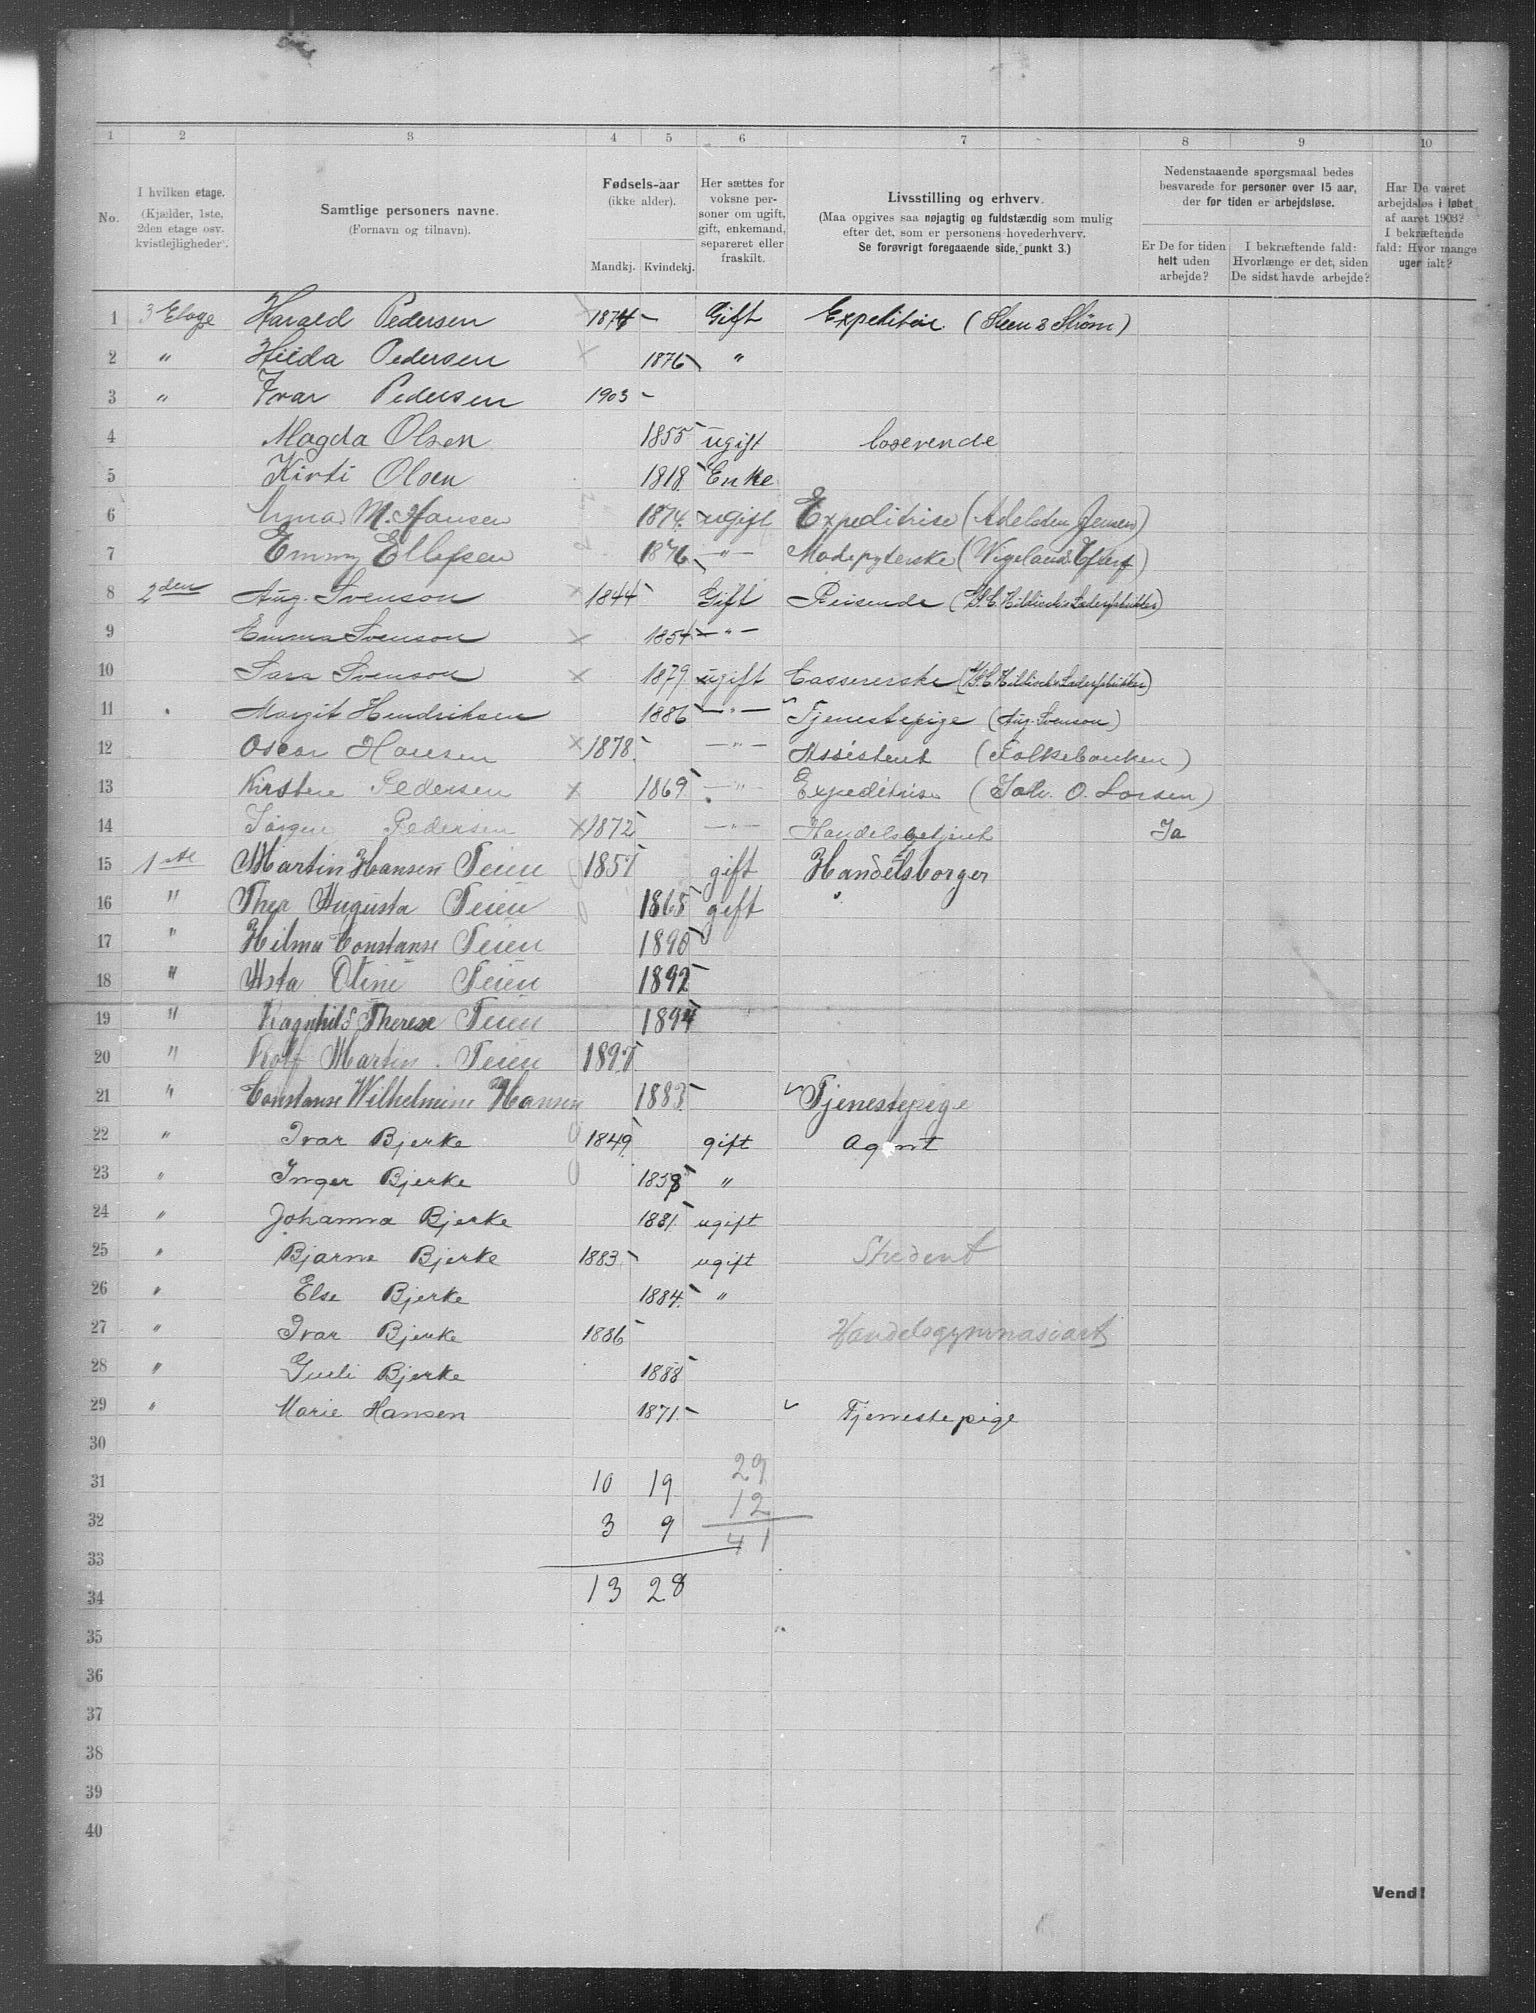 1 2 3 4 5 6 7 8 9 10
No.
I hvilken etage.
(Kjælder, 1ste,
2den etage osv.
kvistlejligheder).
Samtlige personers navne.
(Fornavn og tilnavn).
Fødsels-aar
(ikke alder).
Mandkj. Kvindekj.
Her sættes for
voksne per-
soner om ugift,
gift, enkemand,
separeret eller
fraskilt.
Livsstilling og erhverv.
(Maa opgives saa nøjagtig og fuldstændig som mulig
efter det, som er personens hovederhverv.
Se forøvrigt foregaaende side, punkt 3.)
Nedenstaaende spørgsmaal bedes
besvarede for personer over 15 aar,
der for tiden er arbejdsløse.
Er De for tiden
helt uden
arbejde?
I bekræftende fald:
Hvorlænge er det, siden
De sidst havde arbejde?
Har De været
arbejdsløs i løbet
af aaret 1903?
I bekræftende
fald: Hvor mange
uger ialt?
1 3 Etage Harald Pedersen 1874 - Gift Expeditør. (Steen & Strøm)
2 " Hilda Pedersen 1876 "
3 " Ivar Pedersen 1903 -
4 Magda Olsen 1855 ugift
5 Kirsti Olsen 1818 Enke
6 M. Hansen 1874 ugift Expeditrise (Adelsten Jensen)
7 Emmy Ellefsen 1876 -"- Modepynterske (Vigeland
8 2den Aug. Svenson 1844 Gift Reisende
9 Emma Svenson 1854 -"-
10 Sara Svenson 1879 ugift Cassererske
11 Margit Hendriksen 1886 -"- Tjenestepige (Aug. Svenson)
12 Oscar Hansen 1878 -"- Assistent (Folkebanken)
13 Kirstine Pedersen 1869 -"- Expeditrise (Joh. O. Larsen)
14 Jørgen Pedersen 1872 -"- Handelsbetjent Ja
15 1ste Martin Hansen Teien 1857 gift Handelsborger
16 " Ther Augusta Teien 1865 gift
17 " Hilma Constanse Teien 1890
18 " Asta Otine Teien 1892
19 " Ragnhild Therese Teien 1894
20 " Rolf Martin Teien 1897
21 " Constanse Wilhelmine Hansen 1883 Tjenestepige
22 " Ivar Bjerke 1849 gift Agent
23 " Inger Bjerke 1858 "
24 " Johanna Bjerke 1881 ugift
25 " Bjarne Bjerke 1883 ugift Student
26 " Else Bjerke 1884 "
27 " Ivar Bjerke 1886 Handelsgymnasiast
28 " Guli Bjerke 1888
29 " Marie Hansen 1871 Tjenestepige
30
31 10 19 29
32 3 9 12
33 41
34 13 28
35
36
37
38
39
40
Vend!